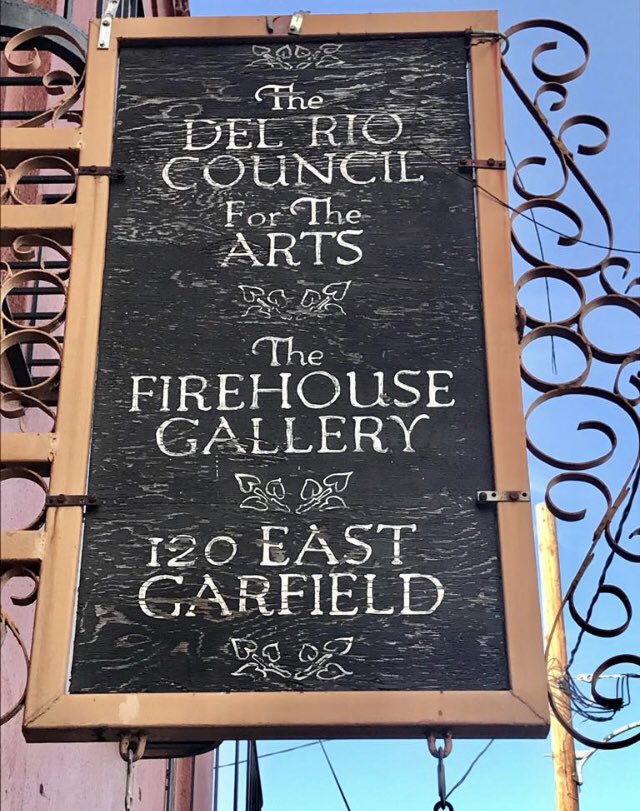 The
DEL RIO
COUNCIL
For The
ARTS
The
FIREHOUSE
GALLERY
120 EAST
GARFIELD